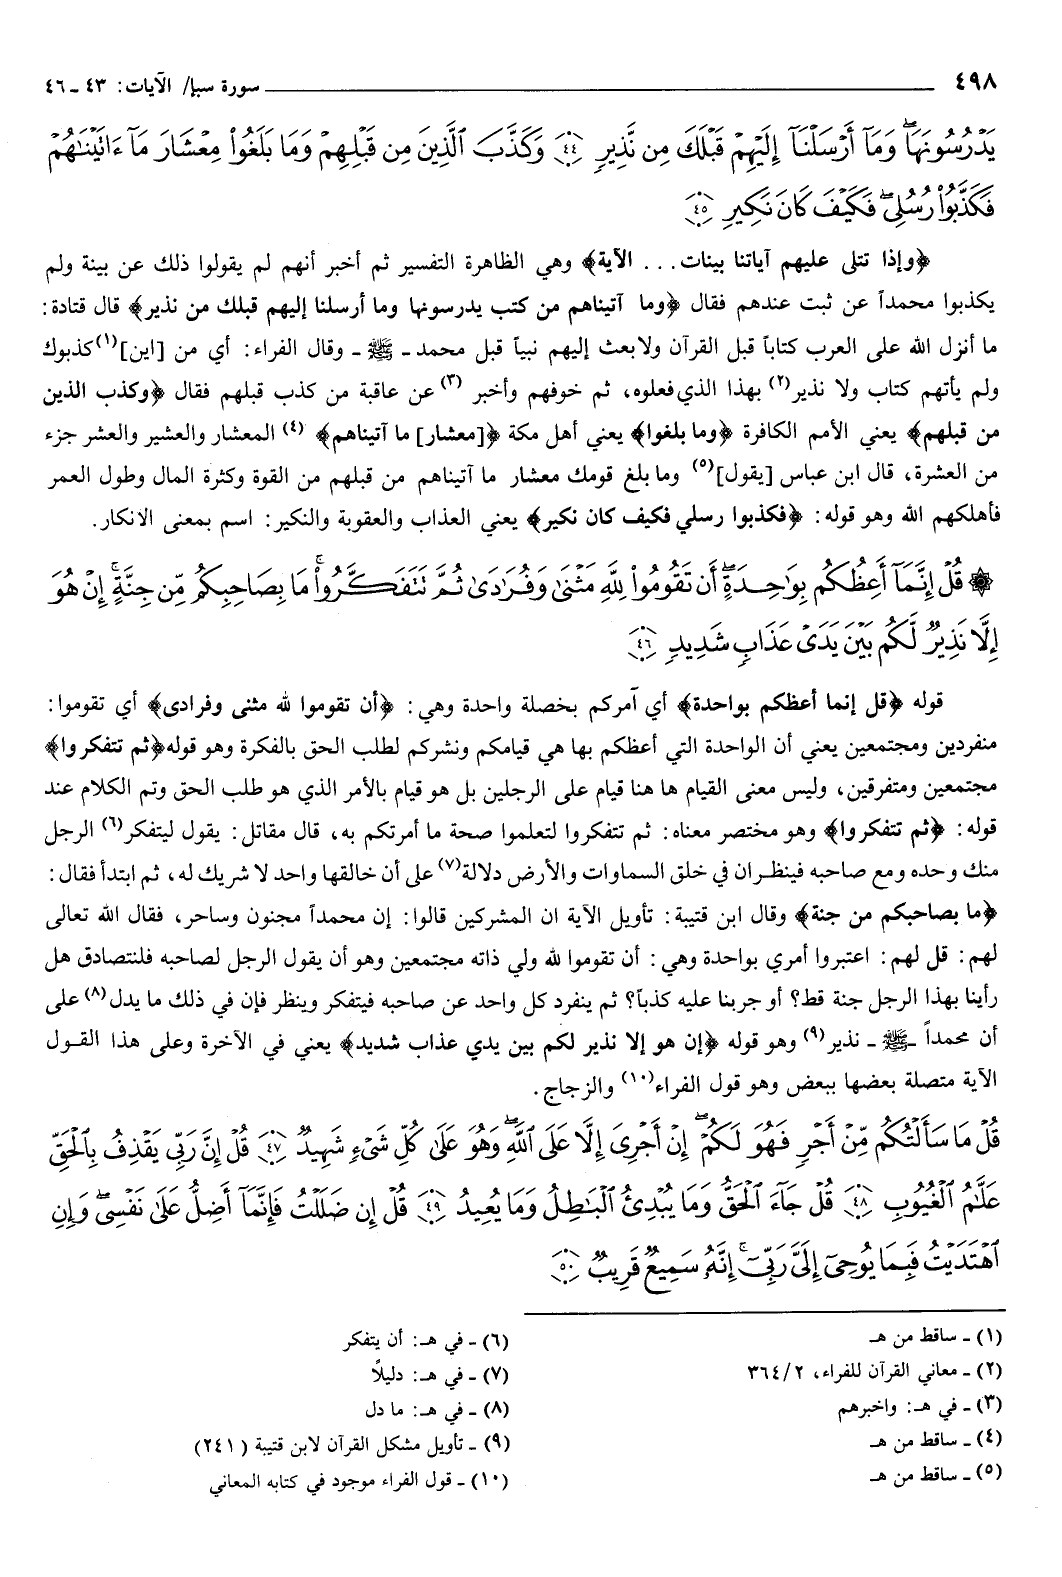 ٤٩٨ سورة سبإ/ الآيات: ٤٣ ـ ٤٦
يَدْرُسُونَهَا وَمَا أَرْسَلْنَا إِلَيْهِمْ قَبْلَكَ مِن نَّذِيرٍ ٤٤ وَكَذَّبَ الَّذِينَ مِن قَبْلِهِمْ وَمَا بَلَغُوا مِعْشَارَ مَا ءَاتَيْنَاهُمْ
فَكَذَّبُوا رُسُلِي فَكَيْفَ كَانَ نَكِيرِ ٤٥
﴿وإذا تتلى عليهم آياتنا بينات... الآية﴾ وهي الظاهرة التفسير ثم أخبر أنهم لم يقولوا ذلك عن بينة ولم
يكذبوا محمداً عن ثبت عندهم فقال ﴿وما آتيناهم من كتب يدرسونها وما أرسلنا إليهم قبلك من نذير﴾ قال قتادة:
ما أنزل الله على العرب كتاباً قبل القرآن ولابعث إليهم نبياً قبل محمد ـ ﷺ ـ وقال الفراء: أي من [اين](١)كذبوك
ولم يأتهم كتاب ولا نذير(٢) بهذا الذي فعلوه، ثم خوفهم وأخبر(٣) عن عاقبة من كذب قبلهم فقال ﴿وكذب الذين
من قبلهم﴾ يعني الأمم الكافرة ﴿وما بلغوا﴾ يعني أهل مكة ﴿[معشار] ما آتيناهم﴾(٤) المعشار والعشير والعشر جزء
من العشرة، قال ابن عباس [يقول](٥) وما بلغ قومك معشار ما آتيناهم من قبلهم من القوة وكثرة المال وطول العمر
فأهلكهم الله وهو قوله: ﴿فكذبوا رسلي فكيف كان نكير﴾ يعني العذاب والعقوبة والنكير: اسم بمعنى الانكار.
۞ قُلْ إِنَّمَا أَعِظُكُم بِوَاحِدَةٍ أَن تَقُومُوا لِلَّهِ مَثْنَىٰ وَفُرَادَىٰ ثُمَّ تَتَفَكَّرُوا مَا بِصَاحِبِكُم مِّن جِنَّةٍ إِنْ هُوَ
إِلَّا نَذِيرٌ لَّكُم بَيْنَ يَدَيْ عَذَابٍ شَدِيدٍ ٤٦
قوله ﴿قل إنما أعظكم بواحدة﴾ أي آمركم بخصلة واحدة وهي: ﴿أن تقوموا لله مثنى وفرادى﴾ أي تقوموا:
منفردين ومجتمعين يعني أن الواحدة التي أعظكم بها هي قيامكم ونشركم لطلب الحق بالفكرة وهو قوله﴿ثم تتفكروا﴾
مجتمعين ومتفرقين، وليس معنى القيام ها هنا قيام على الرجلين بل هو قيام بالأمر الذي هو طلب الحق وتم الكلام عند
قوله: ﴿ثم تتفكروا﴾ وهو مختصر معناه: ثم تتفكروا لتعلموا صحة ما أمرتكم به، قال مقاتل: يقول ليتفكر(٦) الرجل
منك وحده ومع صاحبه فينظران في خلق السماوات والأرض دلالة(٧) على أن خالقها واحد لا شريك له، ثم ابتدأ فقال:
﴿ما بصاحبكم من جنة﴾ وقال ابن قتيبة: تأويل الآية ان المشركين قالوا: إن محمداً مجنون وساحر، فقال الله تعالى
لهم: قل لهم: اعتبروا أمري بواحدة وهي: أن تقوموا لله ولي ذاته مجتمعين وهو أن يقول الرجل لصاحبه فلنتصادق هل
رأينا بهذا الرجل جنة قط؟ أو جربنا عليه كذباً؟ ثم ينفرد كل واحد عن صاحبه فيتفكر وينظر فإن في ذلك ما يدل(٨) على
أن محمداً ـ ﷺ ـ نذير(٩) وهو قوله ﴿إن هو إلا نذير لكم بين يدي عذاب شديد﴾ يعني في الآخرة وعلى هذا القول
الآية متصلة بعضها ببعض وهو قول الفراء(١٠) والزجاج.
قُلْ مَا سَأَلْتُكُم مِّنْ أَجْرٍ فَهُوَ لَكُمْ إِنْ أَجْرِيَ إِلَّا عَلَى اللَّهِ وَهُوَ عَلَىٰ كُلِّ شَيْءٍ شَهِيدٌ ٤٧ قُلْ إِنَّ رَبِّي يَقْذِفُ بِالْحَقِّ
عَلَّامُ الْغُيُوبِ ٤٨ قُلْ جَاءَ الْحَقُّ وَمَا يُبْدِئُ الْبَاطِلُ وَمَا يُعِيدُ ٤٩ قُلْ إِن ضَلَلْتُ فَإِنَّمَا أَضِلُّ عَلَىٰ نَفْسِي وَإِنِ
اهْتَدَيْتُ فَبِمَا يُوحِي إِلَيَّ رَبِّي إِنَّهُ سَمِيعٌ قَرِيبٌ ٥٠
(١) ـ ساقط من هـ
(٢) ـ معاني القرآن للفراء، ٣٦٤/٢
(٣) ـ في هـ: واخبرهم
(٤) ـ ساقط من هـ
(٥) ـ ساقط من هـ
(٦) ـ في هـ: أن يتفكر
(٧) ـ في هـ: دليلاً
(٨) ـ في هـ: ما دل
(٩) ـ تأويل مشكل القرآن لابن قتيبة (٢٤١)
(١٠) ـ قول الفراء موجود في كتابه المعاني